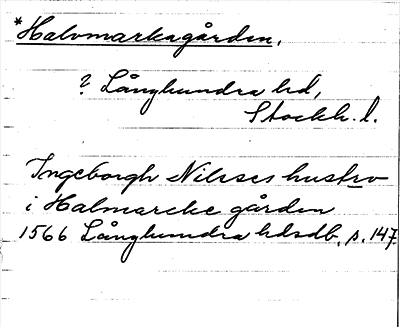 *Halvmarkagården.
? Långhundra hd,
Stockh. l.
Ingeborgh Nilsses hustrv
i Halmarcke gården
1566 Långhundra hdsdb. s. 147.